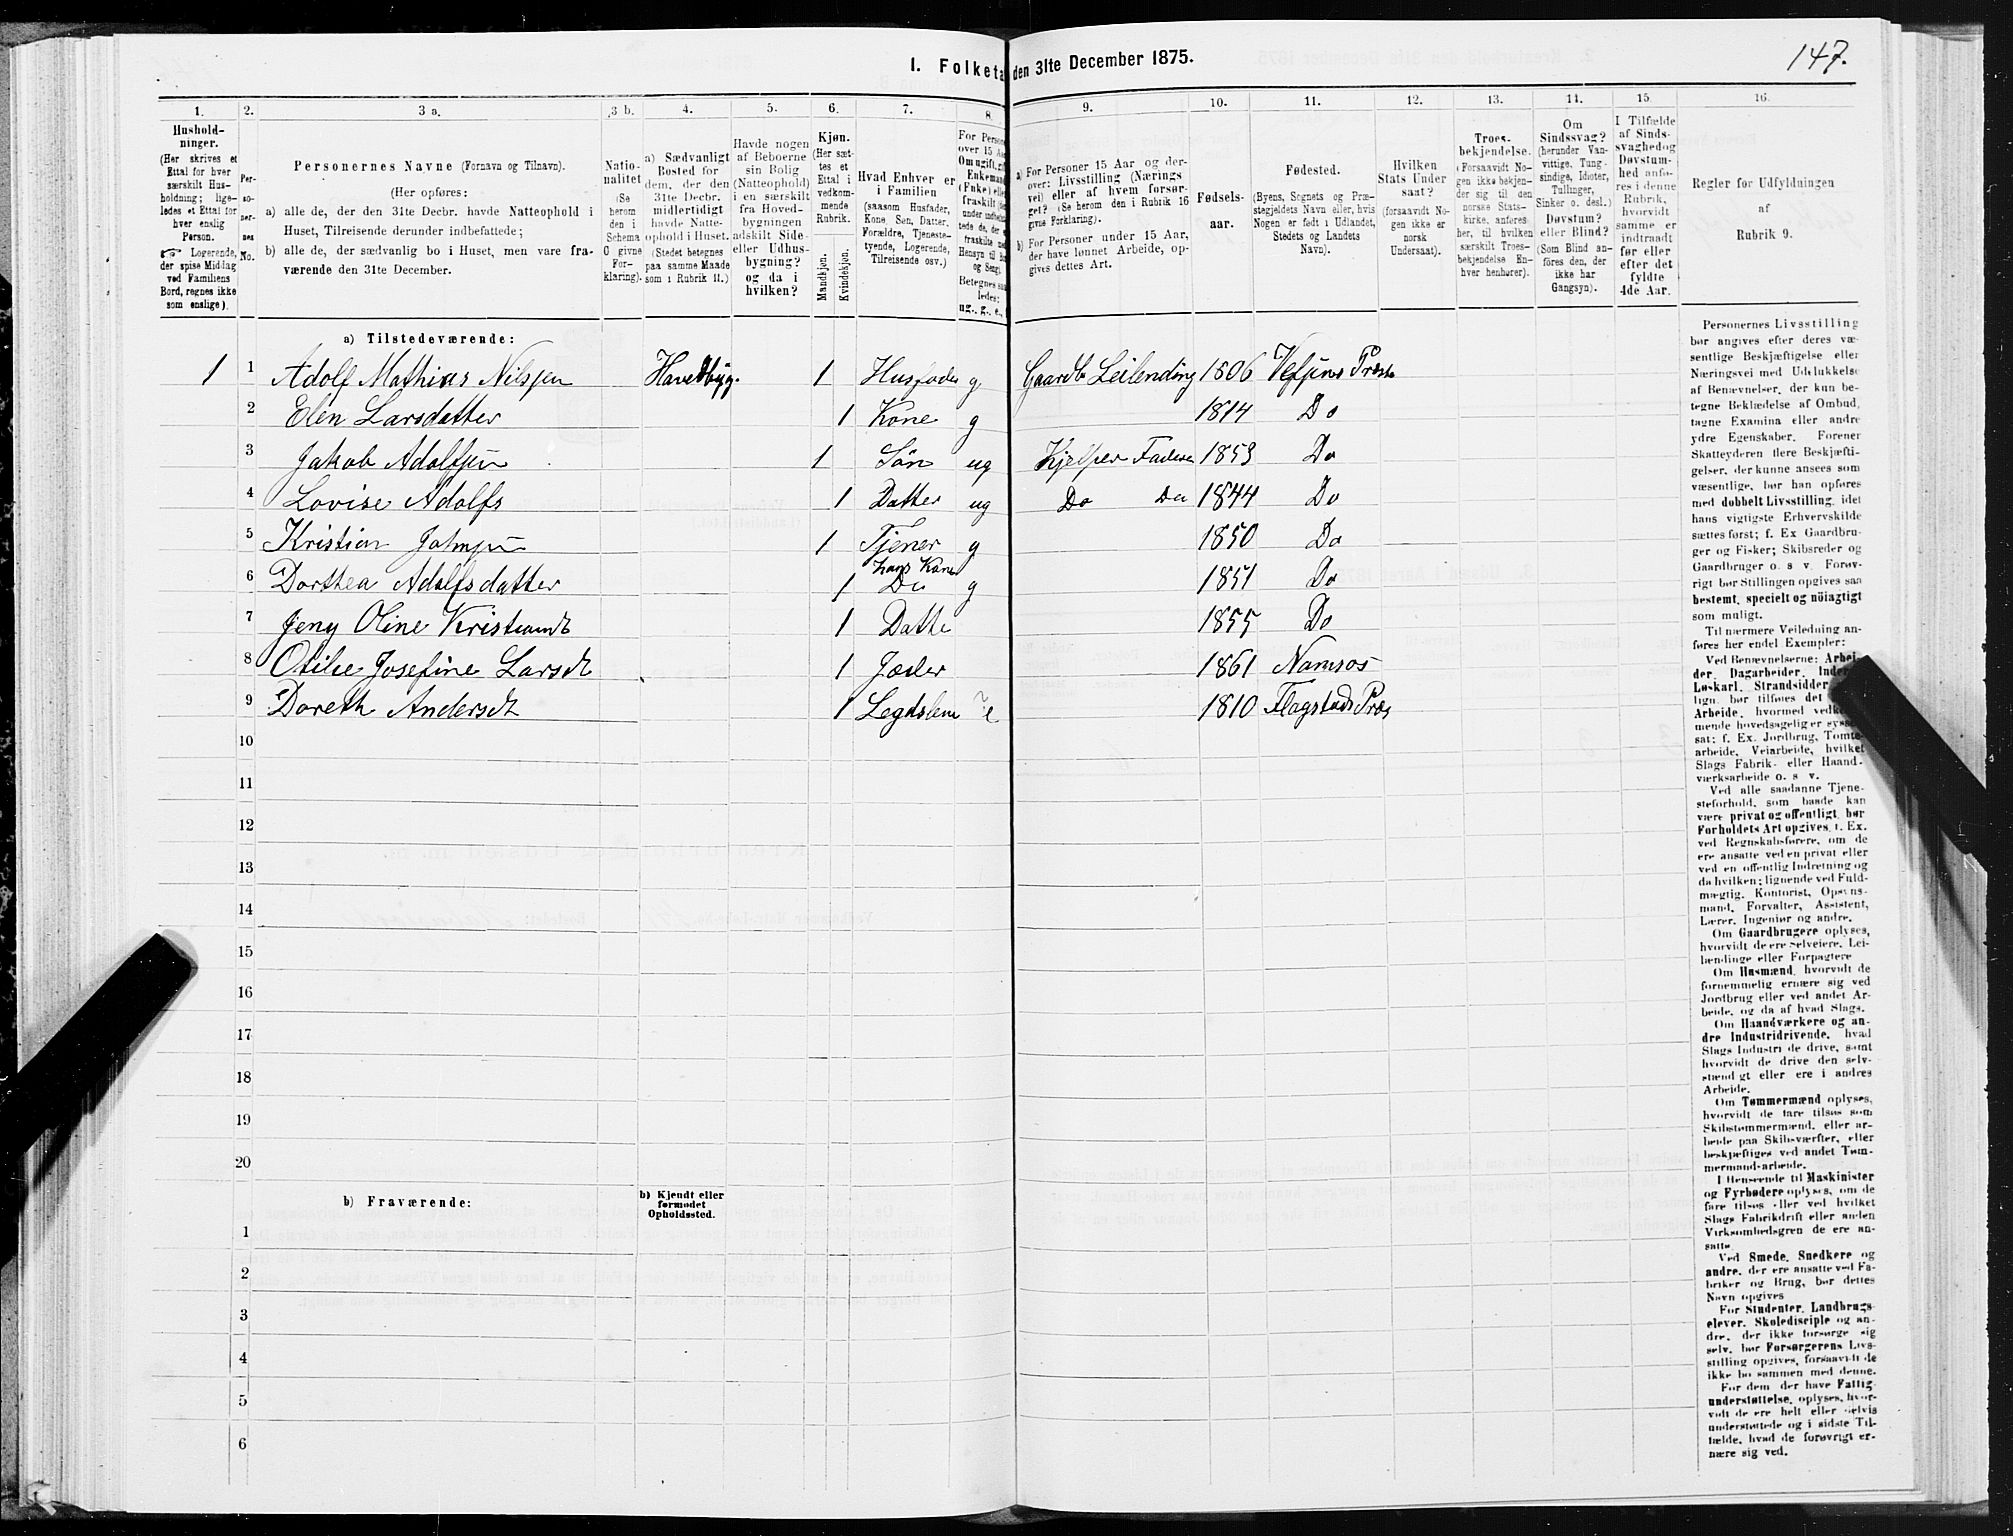 147.
I. Folketa den 31te December 1875.
1. 2. 3 a. 3 b. 4. 5. 6. 7. 8. 9. 10. 11. 12. 13. 14. 15. 16.
Hushold-
ninger.
(Her skrives et
Ettal for hver
særskilt Hus-
holdning; lige-
ledes et Ettal for
hver enslig
Person.
Logerende,
der spise Middag
ved Familiens
Bord, regnes ikke
som enslige).
Per-
so-
ner-
nes
No.
Personernes Navne (Fornavn og Tilnavn).
(Her opføres:
a) alle de, der den 31te Decbr. havde Natteophold i
Huset, Tilreisende derunder indbefattede;
b) alle de, der sædvanlig bo i Huset, men vare fra-
værende den 31te December.
Natio-
nalitet
(Se
herom
den i
Schema
G givne
For-
klaring).
a) Sædvanligt
Bosted for
dem, der den
31te Decbr.
midlertidigt
havde Natte-
ophold i Huset.
(Stedet betegnes
paa samme Maade
som i Rubrik 11.)
Havde nogen
af Beboerne
sin Bolig
(Natteophold)
i en særskilt
fra Hoved-
bygningen
adskilt Side-
eller Udhus-
bygning?
og da i
hvilken?
Kjøn.
(Her sæt-
tes et
Ettal i
vedkom-
mende
Rubrik.
Mandkjøn.
Kvindekjøn.
Hvad Enhver er
i Familien
(saasom Husfader,
Kone, Søn, Datter,
Forældre, Tjeneste-
tyende, Logerende,
Tilreisende osv.)
For Person
over 15 Aa
Om ugift, gif
Enkemand
(Enke) elle
fraskilt
under indbefat
tede de, der
fraskilte
Hensyn til Bo
og Seng).
Betegnes saa
ledes:
ug., g., e.,
a) For Personer 15 Aar og der-
over: Livsstilling (Nærings
vei) eller af hvem forsør-
get? (Se herom den i Rubrik 16
givne Forklaring).
b) For Personer under 15 Aar,
der have lønnet Arbeide, op-
gives dettes Art.
Fødsels-
aar.
Fødested.
(Byens, Sognets og Præ-
stegjeldets Navn eller, hvis
Nogen er født i Udlandet,
Stedets og Landets
Navn).
Hvilken
Stats Under
saat?
(forsaavidt No-
gen ikke er
norsk
Undersaat).
Troes-
bekjendelse.
(Forsaavidt No-
gen ikke bekjen-
der sig til den
norske Stats-
kirke, anføres
her, til hvilken
særskilt Troes-
bekjendelse En-
hver henhører).
Om
Sindssvag?
(herunder Van-
vittige, Tung-
sindige, Idioter,
Tullinger,
Sinker o. desl.)
Døvstum?
eller Blind?
(Som Blind an-
føres den, der
ikke har
Gangsyn).
I Tilfælde
af Sinds-
svaghed og
Døvstum-
hed anfø-
res i denne
Rubrik,
hvorvidt
samme er
indtraadt
før eller
efter det
fyldte
4de Aar.
Regler for Udfyldningen
af
Rubrik 9.
a) Tilstedeværende:
1 1 Adolf Mathias Nilssen 1 Husfader g Gaardb Leilending 1806 Vefsens Præst
2 Elen Larsdatter 1 Kone g 1814 Do
3 Jakob Adolfsen 1 Søn ug Hjelper Faderen 1853 Do
4 Lovise Adolfs 1 Datter ug Do Do 1844 Do
5 Kristian Johnsen 1 Tjener g 1850 Do
hans Kone
6 Dorthea Adolfsdatter 1 Do g 1851 Do
7 Jeny Oline Kristiansdt 1 Datte 1855 Do
8 Otilie Josefine Larsdt 1 1861 Namsos
9 Doreth Andersdt 1 Legdslem e 1810 Flagstads Præs
10
11
12
13
14
15
16
17
18
19
20
b) Fraværende:
b) Kjendt eller
formodet
Opholdssted.
1
2
3
4
5
6
Personernes Livsstilling
bør angives efter deres væ-
sentlige Beskjæftigelse eller
Næringsvei med Udelukkelse
af Benævnelser, der kun be-
tegne Beklædelse af Ombud,
tagne Examina eller andre
ydre Egenskaber. Forener
Skatteyderen flere Beskjæfti-
gelser, der kunne ansees som
væsentlige, bør han opføres
med dobbelt Livsstilling, idet
hans vigtigste Erhvervskilde
sættes først; f. Ex Gaardbru-
ger og Fisker; Skibsreder og
Gaardbruger o. s v. Forøv-
rigt bør Stillingen opgives saa
bestemt, specielt og nöiagtigt
som muligt.
Til nærmere Veiledning an-
føres her endel Exempler:
Ved Benævnelserne: Arbei-
der, Dagarbeider, Inder
Løskarl, Strandsidder
lign. bør tilføies det
Arbeide, hvormed vedko
mende hovedsagelig er syssel
sat; f. Ex. Jordbrug, Tomte
arbeide, Veiarbeide, hvilket
Slags Fabrik- eller Haand-
værksarbeide o. s v.
Ved alle saadanne Tjene-
steforhold, som baade kan
være privat og offentligt, bør
Forholdets Art opgives, f. Ex.
ved Regnskabsførere, om de
ere ansatte ved en privat eller
ved en offentlig Indretning og
da hvilken; lignende ved Fuld-
mægtig, Kontorist, Opsyns-
mand, Forvalter, Assistent,
Lærer, Ingeniør og andre.
Om Gaardbrugere oplyses,
hvorvidt de ere Selveiere, Lei-
lændinge eller Forpagtere
Om Husmænd, hvorvidt de
fornemmelig ernære sig ved
Jordbrug eller ved andet Ar-
beide, og da af hvad Slags.
Om Haandværkere og an-
dre Industridrivende, hvad
Slags Industri de drive, samt
hvorvidt de drive den selv-
stændigt eller ere i andres
Arbeide.
Om Tømmermænd oplyses,
hvorvidt de fare tilsøs som
Skibstømmermænd, eller ar-
beide paa Skibsværfter, eller
beskjæftiges ved andet Tøm-
mermand-arbeide.
I Henseende til Maskinister
og Fyrbødere oplyses, om de
fare tilsøs eller ved hvilket
Slags Fabrikdrift eller anden
Virksomhedsgren de ere an-
satte.
Ved Smede, Snedkere og
andre, der ere ansatte ved Fa-
briker og Brug, bør dettes
Navn opgives
For Studenter, Landbrugs-
elever, Skoledisciple og an-
dre, der ikke forsørge sig
selv, bør Forsørgerens Livs-
stilling opgives, forsaavidt de
ikke bo sammen med denne.
For dem, der have Fattig-
understøttelse, oplyses, hvor-
vidt de ere helt eller delvis
understøttede og i sidste Til-
fælde, hvad de forøvrigt er-
nære sig ved.